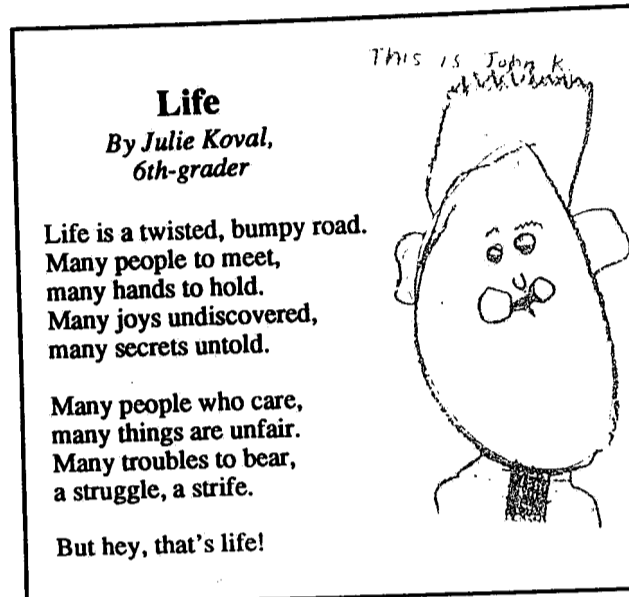 This is John K.
Life
By Julie Koval,
6th-grader
Life is a twisted, bumpy road.
Many people to meet,
many hands to hold.
Many joys undiscovered,
many secrets untold.
Many people who care,
many things are unfair.
Many troubles to bear,
a struggle, a strife.
But hey, that's life!